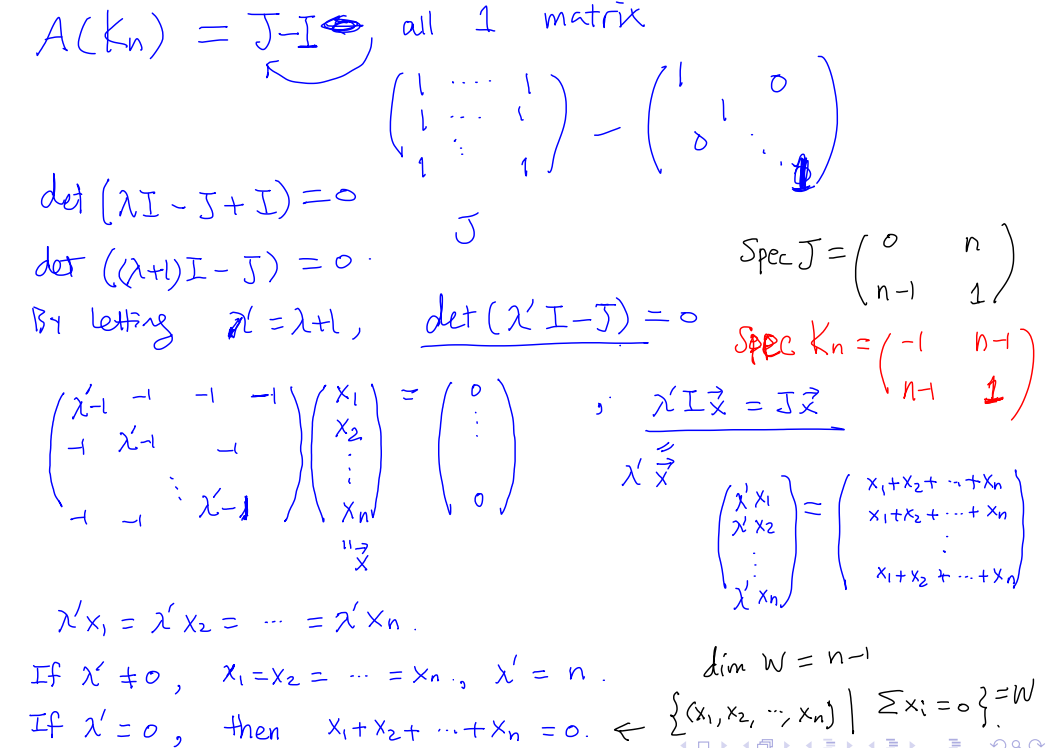 A(Kn) = J-I all 1 matrix
( 1 ···· 1 ; 1 ··· 1 ; ⋮ ; 1 1 ) − ( 1 0 ; 1 ; 0 ⋱ 1 )
J
det (λI - J + I) = 0
det ((λ+1)I - J) = 0.
By letting λ' = λ+1, det (λ'I-J) = 0
Spec J = ( 0 n ; n-1 1 )
Spec Kn = ( -1 n-1 ; n-1 1 )
( λ'-1 -1 -1 -1 ; -1 λ'-1 -1 ; ⋱ ; -1 -1 λ'-1 ) ( x1 ; x2 ; ⋮ ; xn ) = ( 0 ; ⋮ ; 0 ) , λ'Ix⃗ = Jx⃗
" x⃗
" λ'x⃗
( λ'x1 ; λ'x2 ; ⋮ ; λ'xn ) = ( x1+x2+ ··· +xn ; x1+x2+ ··· + xn ; ⋮ ; x1+x2 + ··· +xn )
λ'x1 = λ'x2 = ··· = λ'xn.
If λ' ≠ 0, x1=x2= ··· = xn., λ' = n.
dim W = n-1
If λ' = 0, then x1+x2+ ··· +xn = 0. ← {(x1, x2, ···, xn) | Σxi = 0} = W.